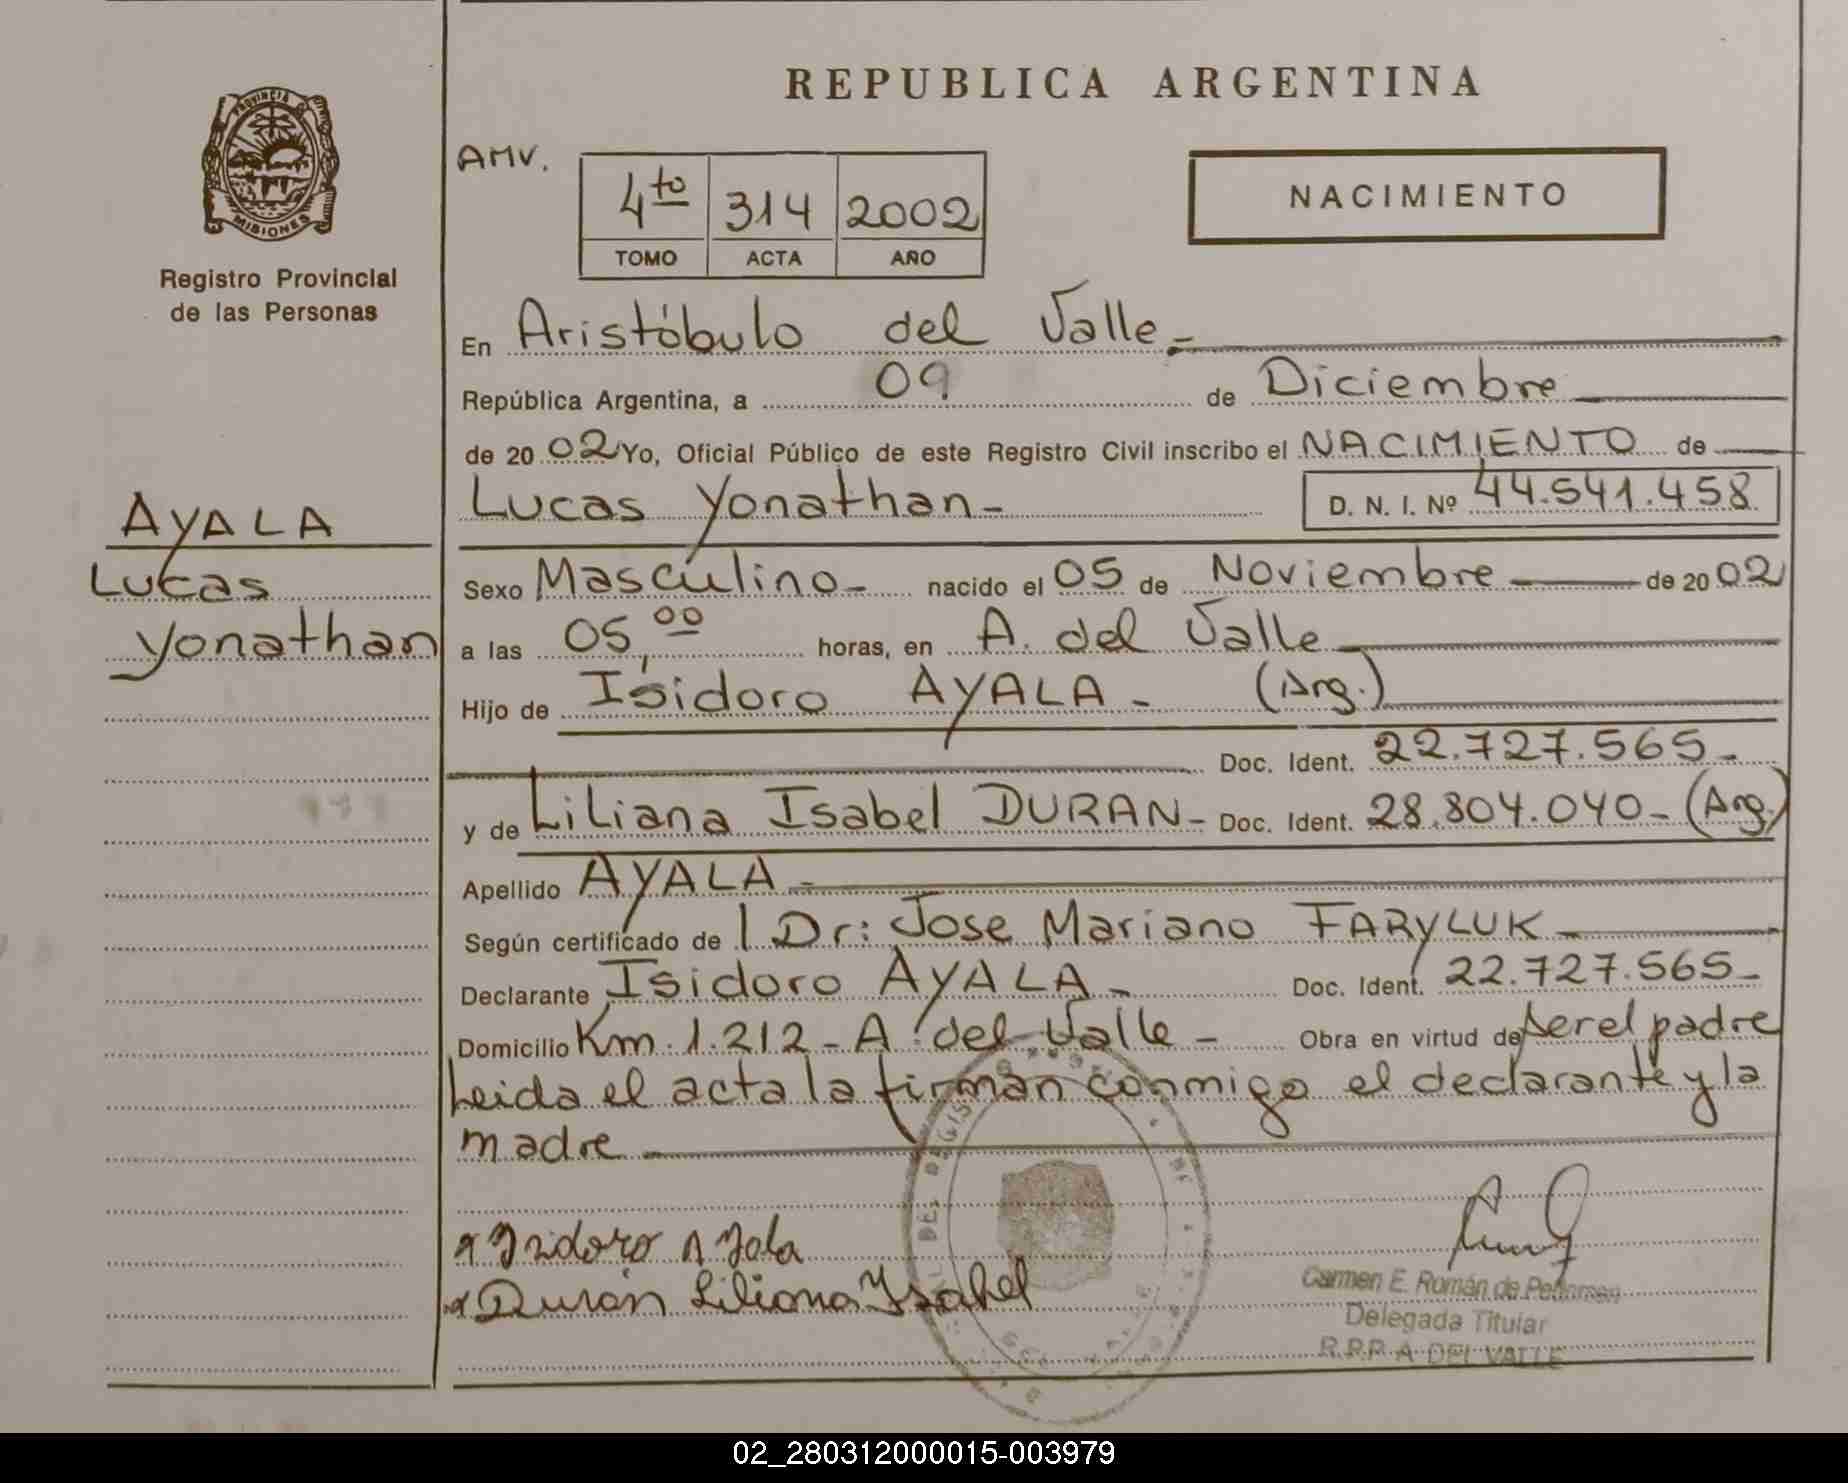 PROVINCIA
MISIONES
Registro Provincial
de las Personas
AYALA
Lucas
Yonathan
REPUBLICA ARGENTINA
AMV.
4to 314 2002
TOMO ACTA AÑO
NACIMIENTO
En Aristóbulo del Valle.-
República Argentina, a 09 de Diciembre
de 2002 Yo, Oficial Público de este Registro Civil inscribo el NACIMIENTO de
Lucas Yonathan- D. N. I. Nº 44.541.458
Sexo Masculino- nacido el 05 de Noviembre de 2002
a las 05,00 horas, en A. del Valle
Hijo de Isidoro AYALA- (Arg.)
Doc. Ident. 22.727.565-
y de Liliana Isabel DURAN- Doc. Ident. 28.804.040- (Arg.)
Apellido AYALA-
Según certificado de Dr: Jose Mariano FARYLUK-
Declarante Isidoro AYALA- Doc. Ident. 22.727.565-
Domicilio Km. 1.212- A. del Valle- Obra en virtud de ser el padre
Leida el acta la firman conmigo el declarante y la
madre
Isidoro Ayala
Duran Liliana Ysabel
Carmen E. Román de
Delegada Titular
R.P.P. A. DEL VALLE
02_280312000015-003979